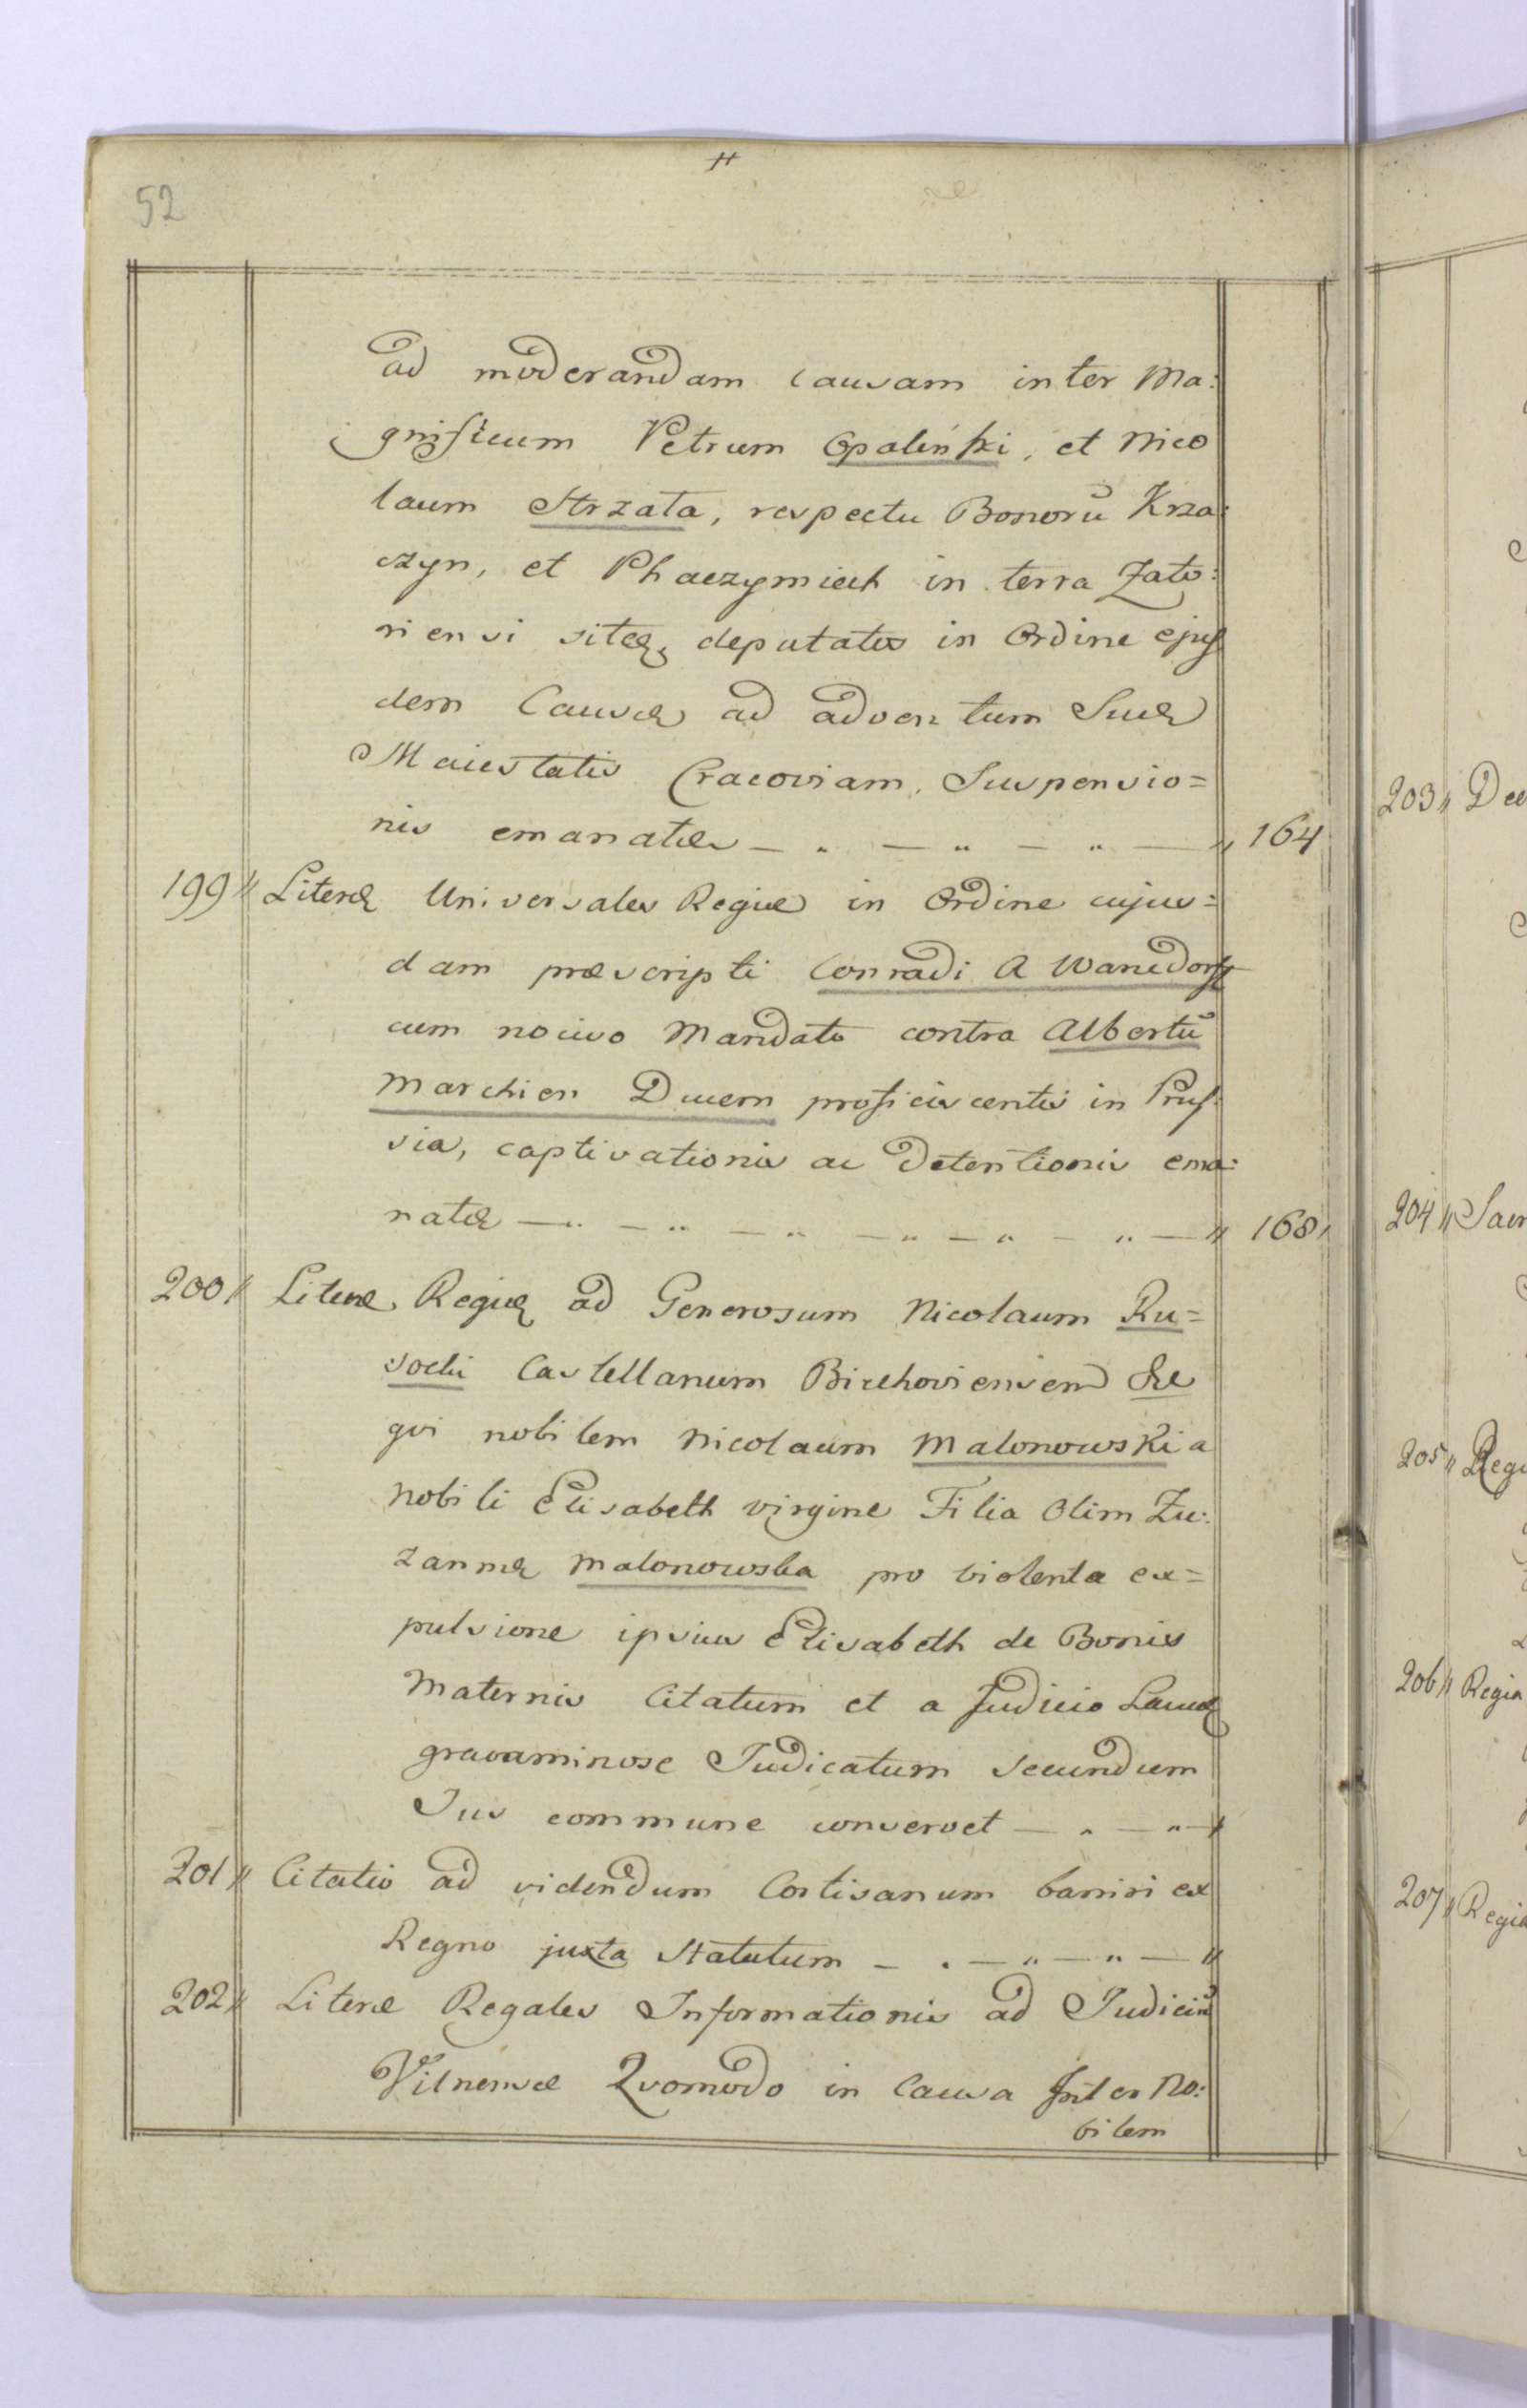 52
ad moderandam causam inter Ma:
gnificum Petrum Opaliński, et Nico
laum Strzała, respectu Bonorũ Krza:
czyn, et Phaczymiech in terra Zato:
riensi sitæ, deputatis in Ordine ejus
dem Causæ ad adventum Suæ
Maiestatis Cracoviam, Suspensio=
nis emanatæ — „ — „ — „ — „ 164
199 „ Literæ Universales Regiæ in Ordine cujus=
dam præscripti Conradi a Wanedorff
cum nocivo Mandato contra Albertũ
Marchien Ducem proficiscentis in Prus:
sia, captivationis ac Detentionis ema:
natæ — „ — „ — „ — „ — „ — „ — „ 168
200 „ Literæ Regiæ ad Generosum Nicolaum Ru=
socki Castellanum Biechoviensem
qvi nobilem Nicolaum Malonowski a
Nobili Elisabeth virgine Filia Olim Zu:
zannæ Malonowska pro violenta ex=
pulsione ipsius Elisabeth de Bonis
Maternis Citatum et a Judicio
gravaminose Judicatum secundum
Jus commune conservet — „ — „
201 „ Citatio ad videndum Cortisanum baniri ex
Regno juxta Statutum — „ — „ — „ — „
202 „ Literæ Regales Informationis ad Judiciũ
Vilnense Qvomodo in Causa Inter No:
bilem
203 „ Dec
204 „ Sacr
205 „ Regi
206 „ Regia
207 „ Regia